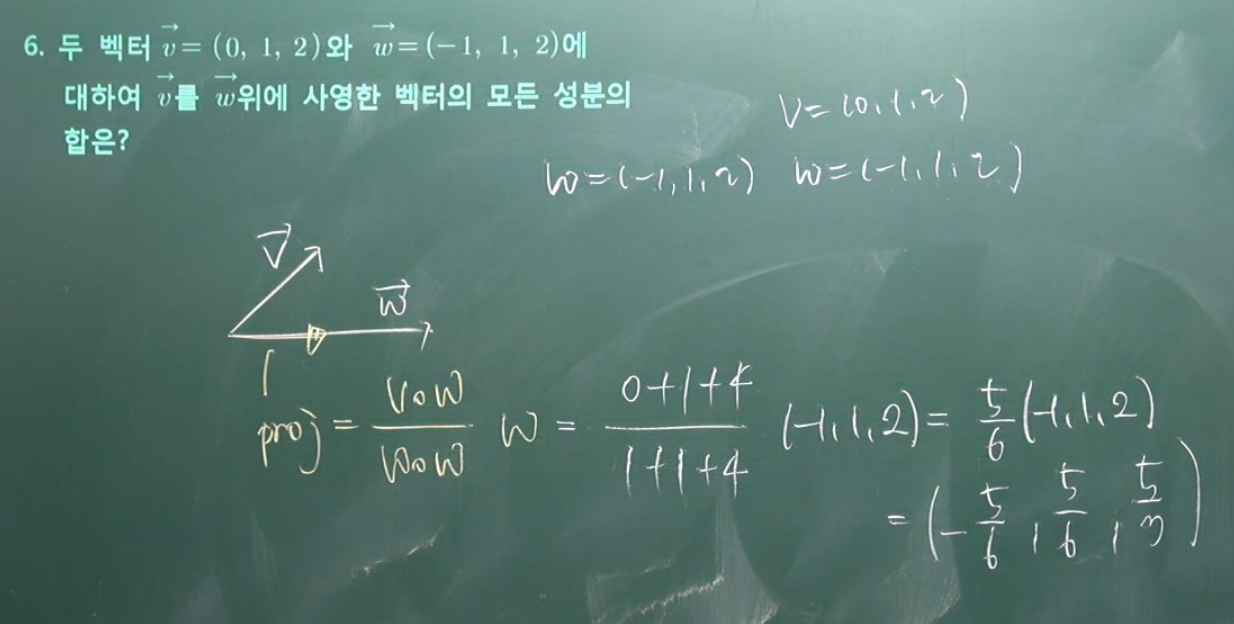 6. 두 벡터 v→ = (0, 1, 2)와 w→ = (-1, 1, 2)에
대하여 v→를 w→위에 사영한 벡터의 모든 성분의
합은?
V = (0, 1, 2)
W = (-1, 1, 2) W = (-1, 1, 2)
V→
W→
proj = V∘W / W∘W W = 0+1+4 / 1+1+4 (-1, 1, 2) = 5/6 (-1, 1, 2)
= (-5/6, 5/6, 5/3)